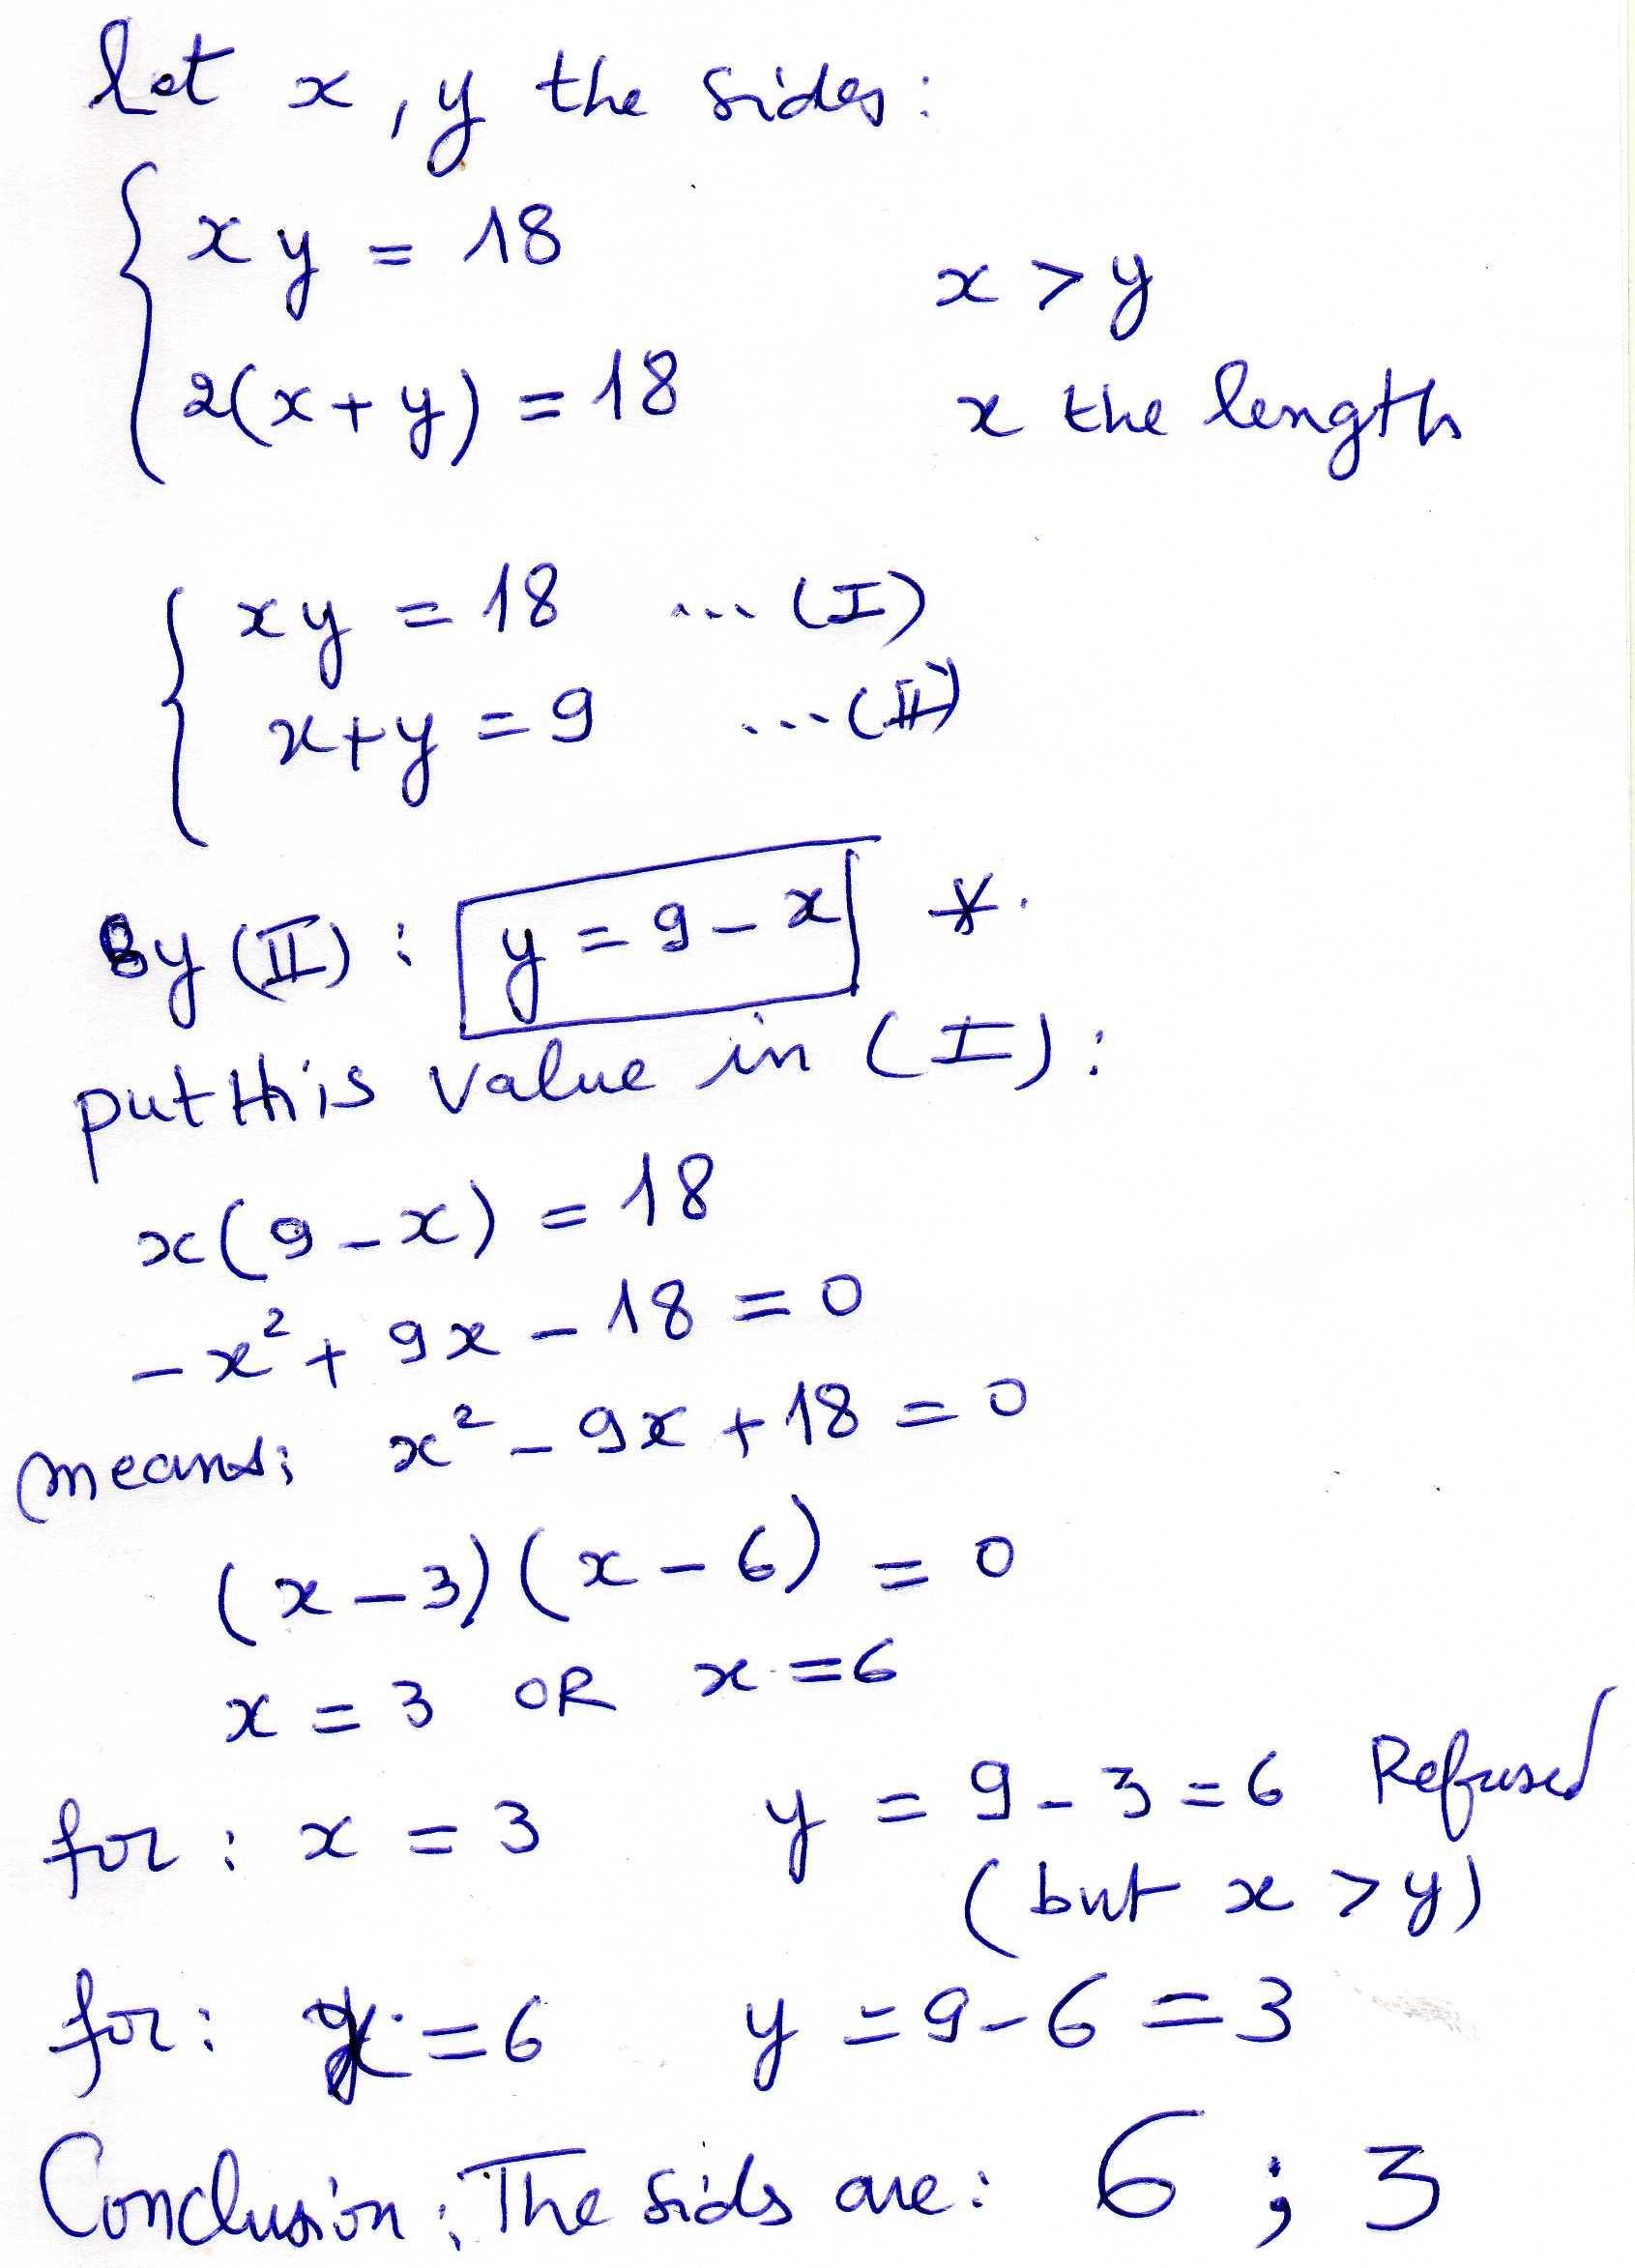 let x, y the sides:
xy = 18
x > y
2(x+y) = 18
x the length
xy = 18 ... (I)
x+y = 9 ... (II)
By (II) : y = 9 - x *.
put this value in (I):
x(9-x) = 18
-x² + 9x - 18 = 0
means: x² - 9x + 18 = 0
(x-3)(x-6) = 0
x = 3 OR x = 6
for: x = 3 y = 9-3=6 Refused
(but x > y)
for: x = 6 y = 9-6 = 3
Conclusion: The sids are: 6 ; 3